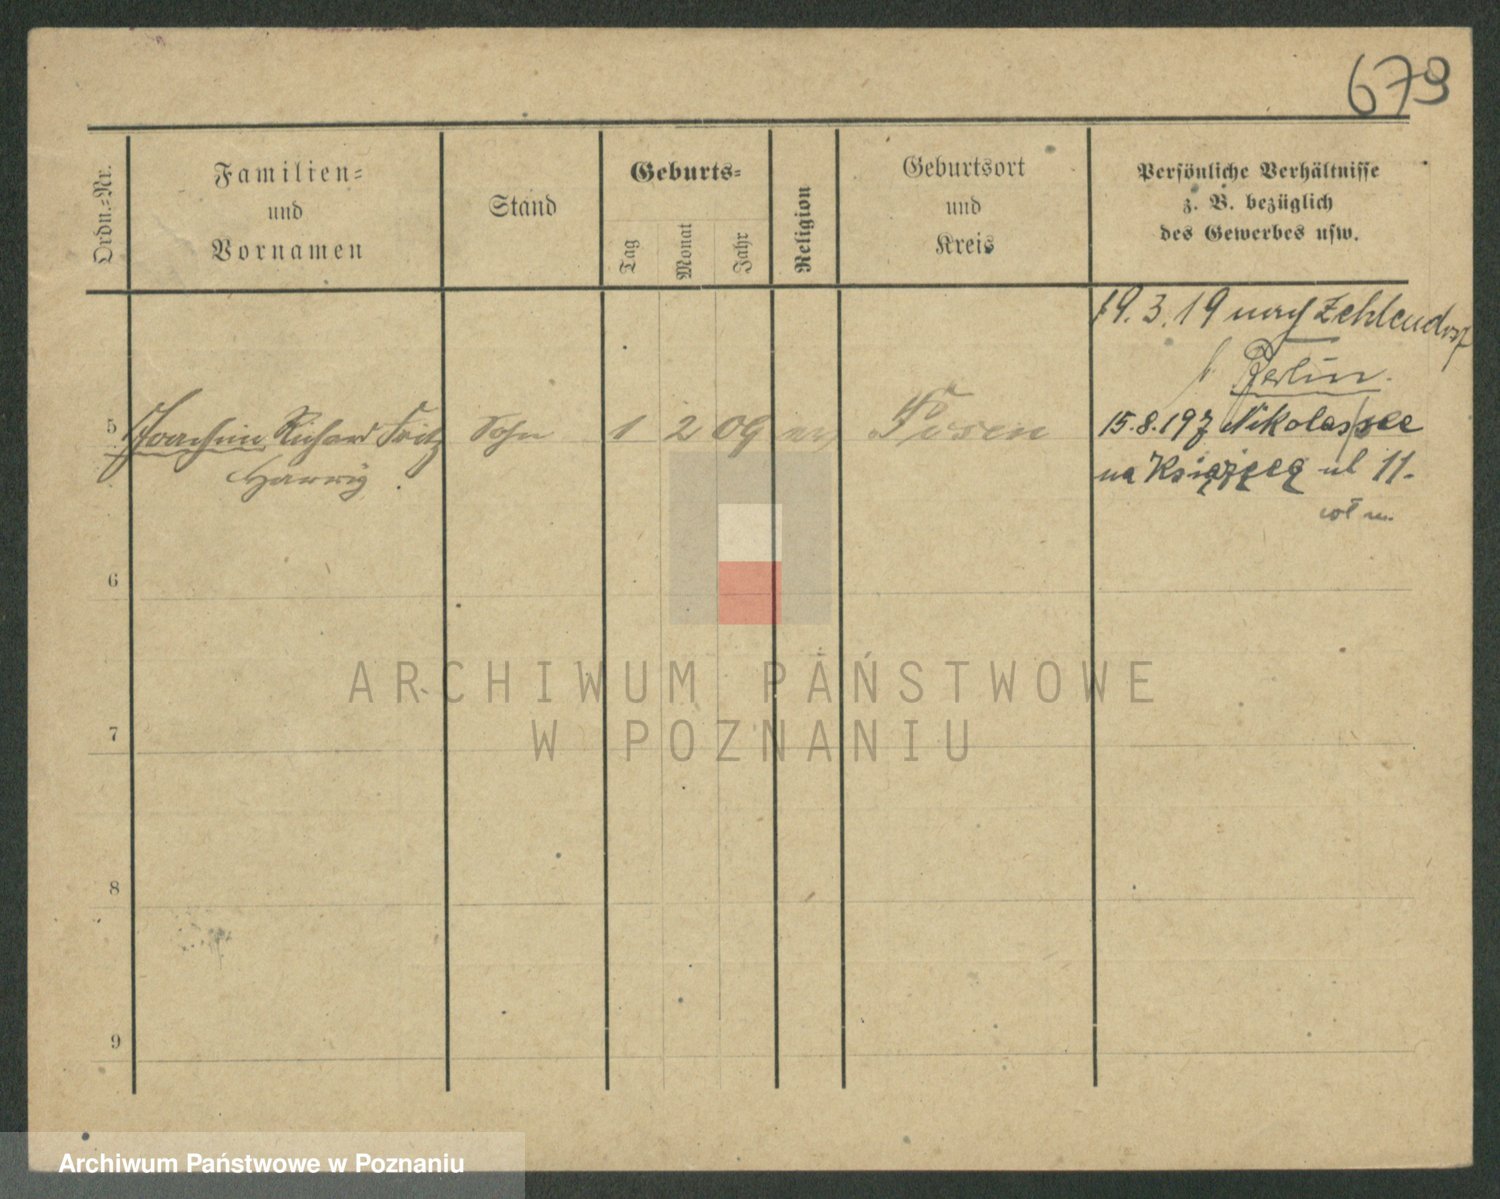 679
Ordn.-Nr.
Familien-
und
Vornamen
Stand
Geburts-
Tag
Monat
Jahr
Religion
Geburtsort
und
Kreis
Persönliche Verhältnisse
z. B. bezüglich
des Gewerbes usw.
19.3.19 nach Zehlendorf
Berlin.
5 Joachim Richard Fritz Sohn 1 2 09 Posen
15.8.19 Nikolassee
na ul 11.
6
7
8
9
ARCHIWUM PAŃSTWOWE
W POZNANIU
Archiwum Państwowe w Poznaniu